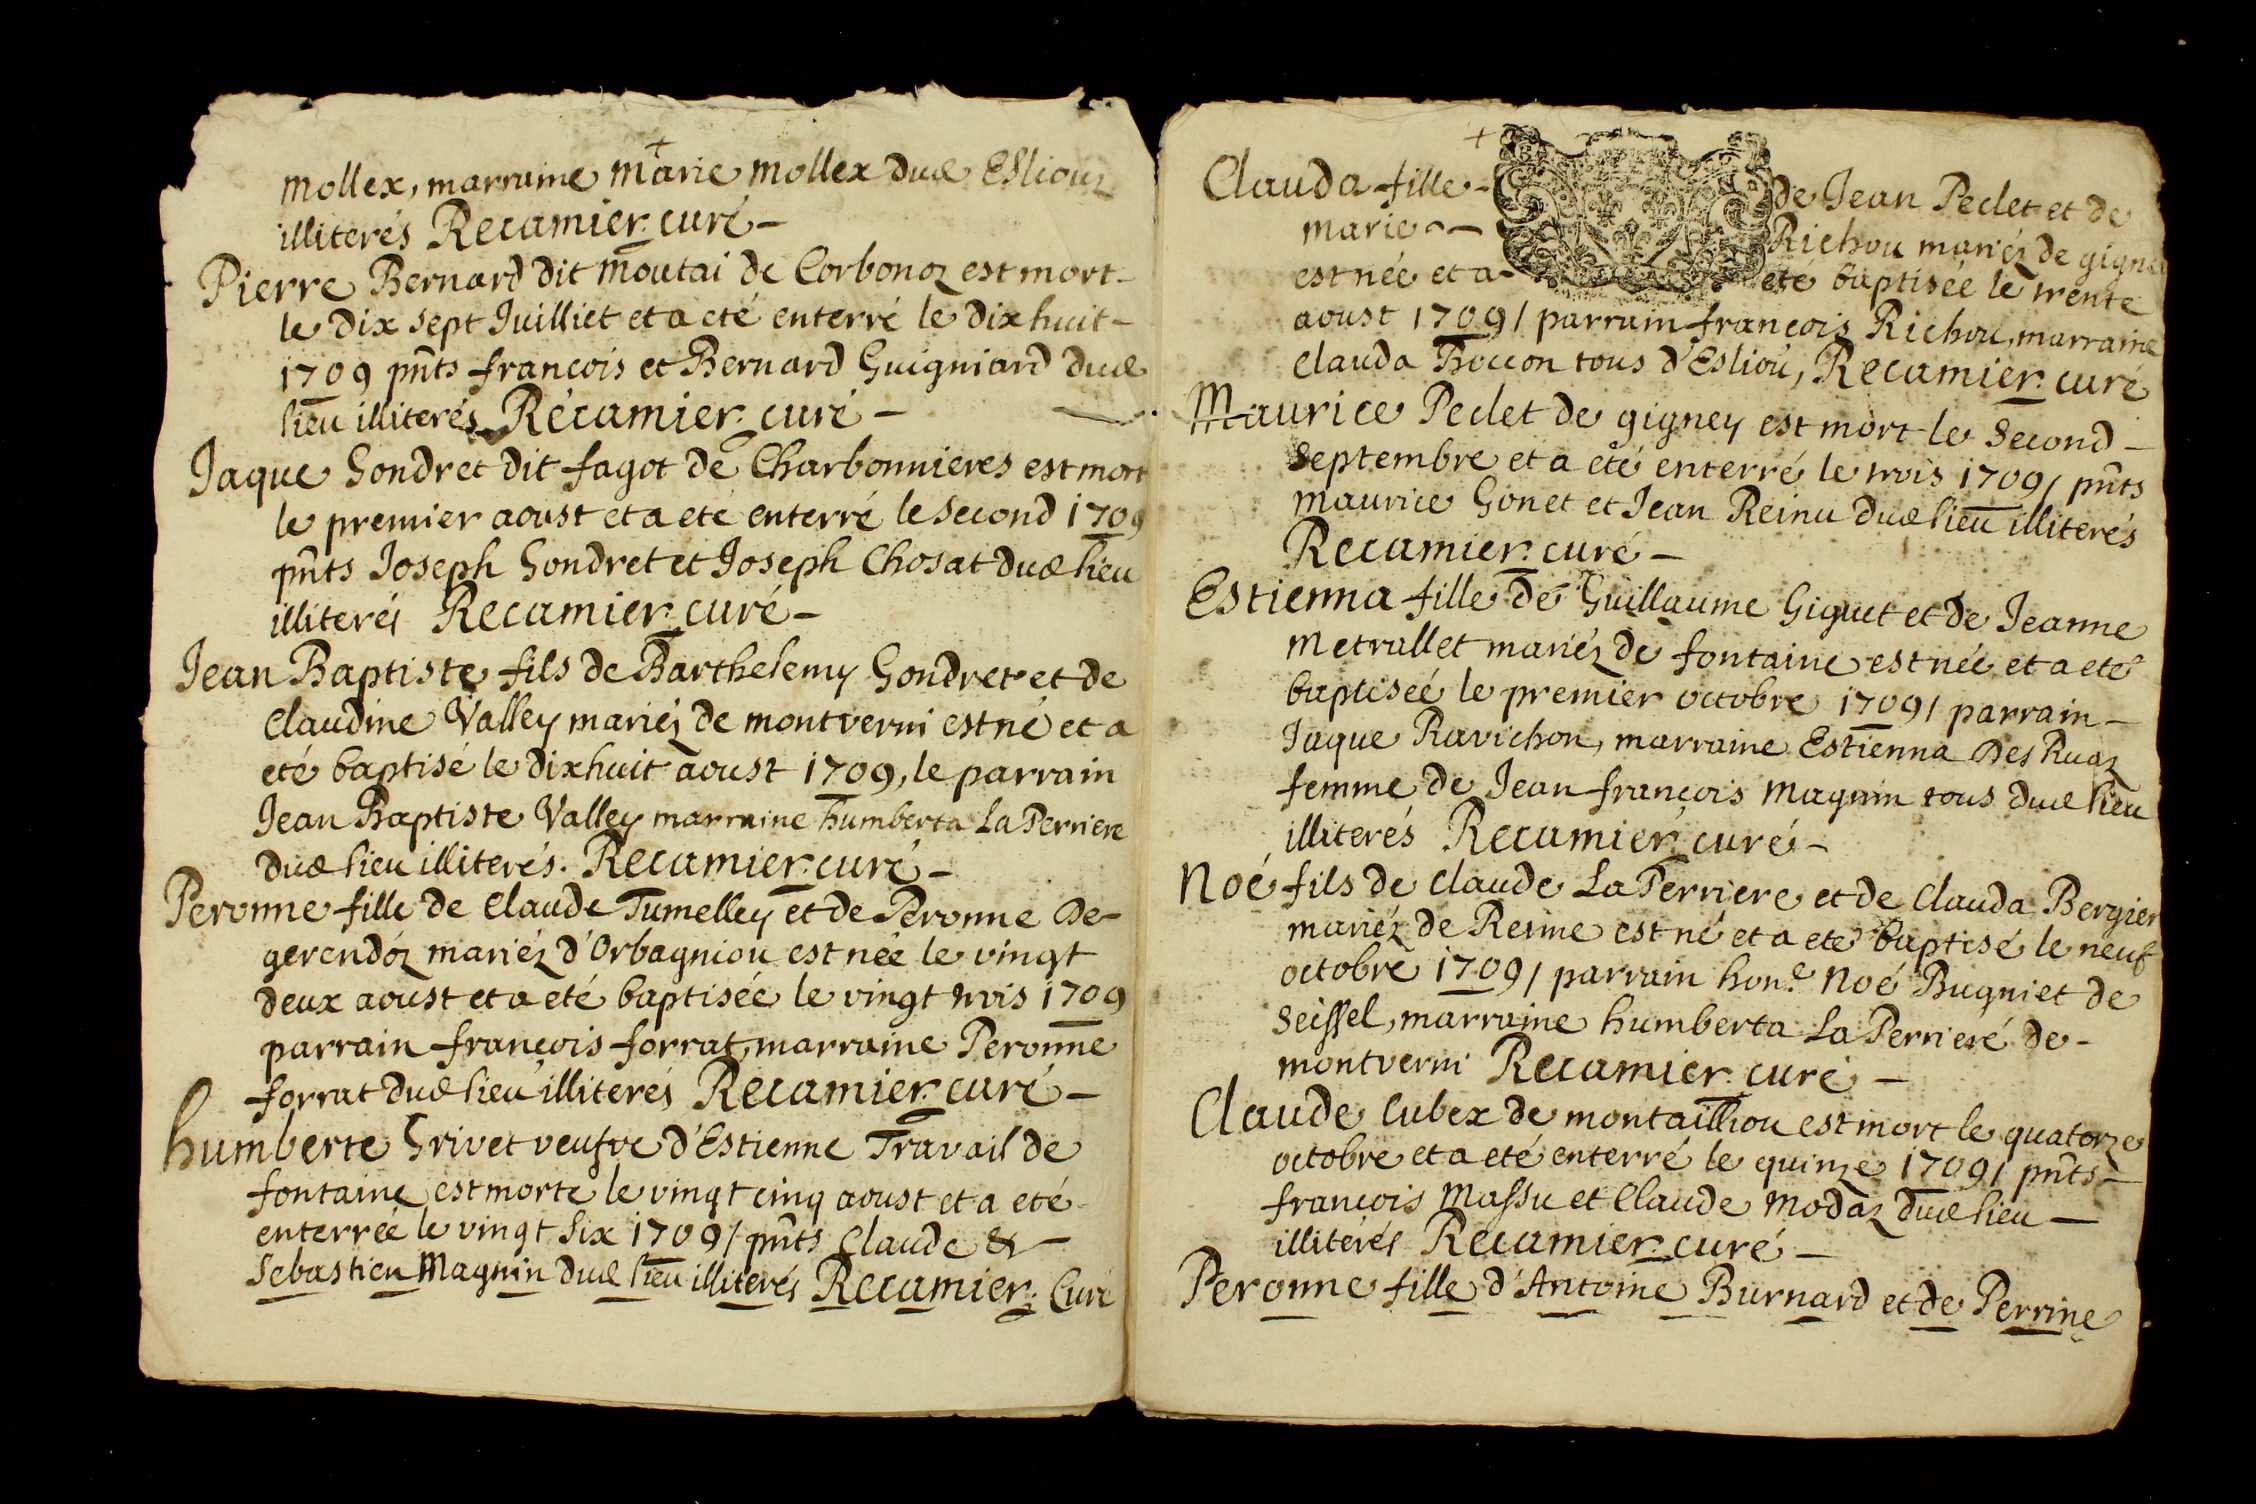 mollex, marraine marie mollex dud Esliouz
illiterés Recamier. curé –
Pierre Bernard dit moutai de Corbonoz est mort –
le dix sept Juilliet et a eté enterré le dixhuit –
1709 pñts francois et Bernard Guigniard dud
lieu illiterés Récamier. curé –
Jaque Gondret dit fagot de Charbonnieres est mort
le premier aoust et a eté enterré le second 1709
pñts Joseph Gondret et Joseph Chosat dud lieu
illiterés Recamier curé –
Jean Baptiste fils de Barthelemy Gondret et de
Claudine Valley mariéz de montverni est né et a
eté baptisé le dixhuit aoust 1709, le parrain
Jean Baptiste Valley marraine humberta La Perriere
dud lieu illiterés. Recamier. curé –
Peronne fille de Claude Tumelley et de Peronne De-
gerendóz mariéz d'Orbagniou est née le vingt
deux aoust et a eté baptisée le vingt trois 1709
parrain françois forrat, marraine Peronne
forrat dud lieu illiterés Recamier. curé –
humberte Grivet veufve d'Estienne Travail de
fontaine est morte le vingt cinq aoust et a eté
enterrée le vingt six 1709 / pñts Claude & –
Sebastien Magnin dud lieu illiterés Recamier. Curé
Clauda fille – de Jean Peclet et de
marie – Richou mariéz de gigney
est née et a – eté baptisée le trente
aoust 1709 / parrain francois Richou, marraine
Clauda Boccon tous d'Esliou, Recamier. curé
Maurice Peclet de gigney est mort le second –
septembre et a eté enterré le trois 1709 / pñts
maurice Gonet et Jean Reinu dud lieu illiterés
Recamier. curé –
Estienna fille de Guillaume Giguet et de Jeanne
metrallet mariéz de fontaine est née et a eté
baptiseé le premier octobre 1709 / parrain –
Jaque Ravichon, marraine Estienna Des Ruaz
femme de Jean françois magnin tous dud lieu
illiterés Recamier. curé –
Noé fils de claude La Perriere et de Clauda Bergier
mariéz de Reime est né et a eté baptisé le neuf
octobre 1709 / parrain hon.e Noé Bugniet de
seissel, marraine humberta La Perrieré de –
montverni Recamier. curé –
Claude Cubex de montailliou est mort le quatorze
octobre et a eté enterré le quinze 1709 / pñts –
françois Massu et Claude modaz dud lieu –
illiterés Recamier. curé –
Peronne fille d'Antoine Burnard et de Perrine